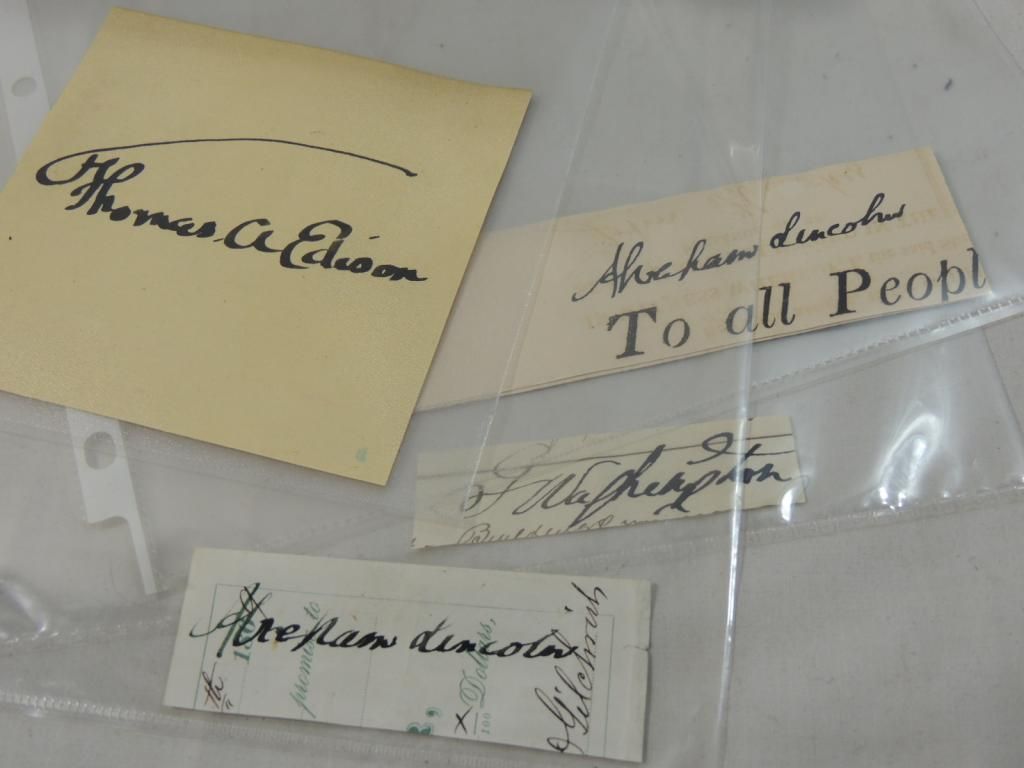 Thomas A Edison
Abraham Lincoln
To all Peopl
G Washington
Abraham Lincoln
promise to
Dollars,
100
X
th
Gilchrist